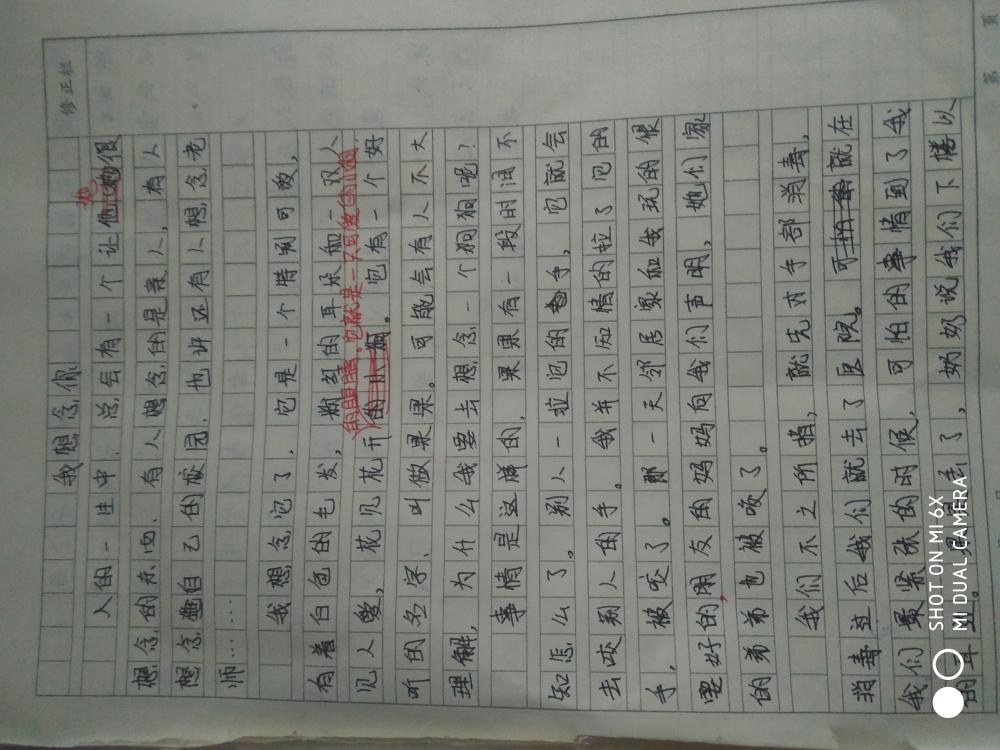 修正栏
我想念你
人的一生中，总会有一个让他她很
她
想念的东西。有人想念的是亲人，有人
想念趣自己的校园。也许还有人想念老
师……
我想念它了，它是一个特别可爱，
有着白色的毛发，粉红的耳朵和一双人
的眼睛。它就是一只可爱的小狗。
见人爱，花见花开的小狗。它有一个好
听的名字，叫做果果。可能会有人不大
理解，为什么我要去想念一个狗狗呢？
事情是这样的，果果有一段时间不
知怎么了。别人一拉它的手，它就会
去咬别人的手。我并不知情的拉了它的
手，被咬了。那一天邻居家和我玩的很
要好的朋友的妈妈向我们声明，她们家
的弟弟也被咬了。
我们不之所措，就先对手部消毒，
消毒过后我们就去了医院。可就在
我们最紧张的时候，可怕的事情到了我
的耳
了，奶奶说我们下楼以
第 页
SHOT ON MI 6X
MI DUAL CAMERA